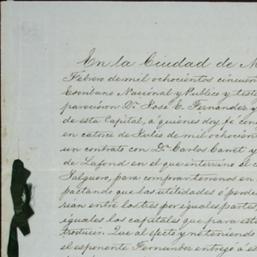 En la Ciudad de M
Febrero de mil ochocientos cincuen
Escribano Nacional y Publico y testi
parecieron Dn. José E. Fernandez y
de esta Capital, a quienes doy fé cono
en catorce de Julio de mil ochocien
un contrato con Dn. Carlos Canet y
de Lafond en el que intervino el c
Salguero, para comprar terrenos en
pactando que las utilidades o perdi
rian entre los tres por iguales partes
iguales los capitales que para esta
trucion. Que al efecto y no teniendo
el esponente Fernandez entregó a es